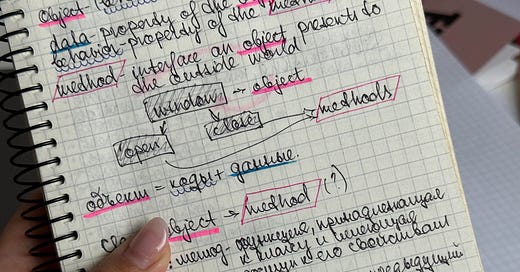 object-
data-property of the
behavior-property of the
method-interface an object presents to
the outside world
window → object
close
methods
open
объект = коды + данные.
object → method (?)
: метод-функция, принадлежащая
к классу и имеющая
к его свойствам